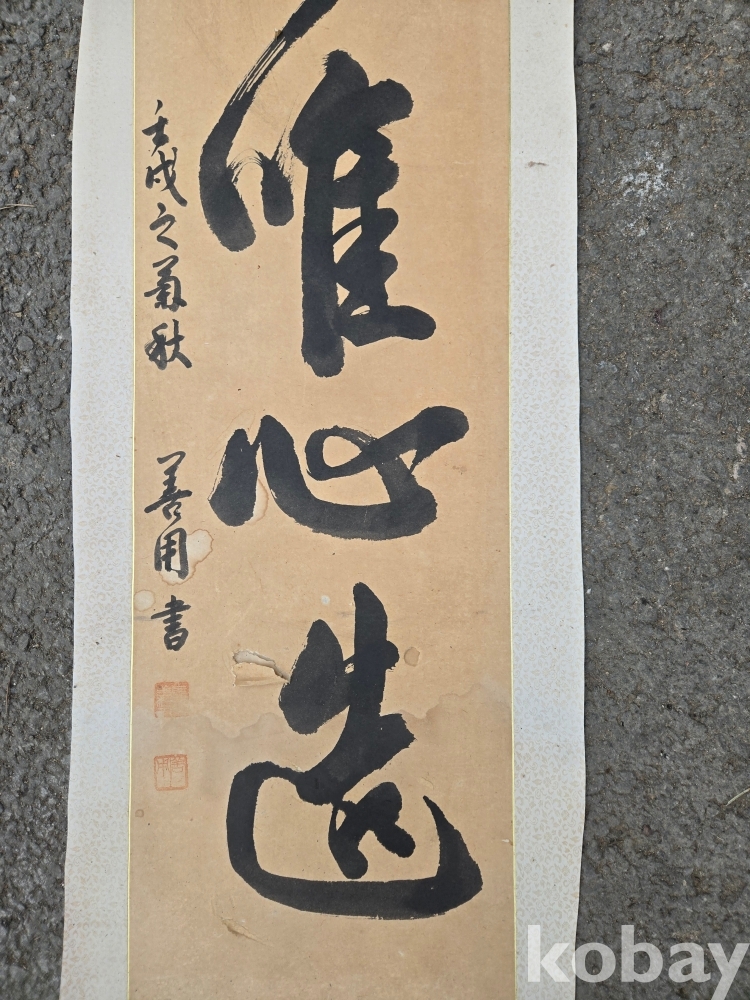 唯心造
壬戌之菊秋 善用書
kobay